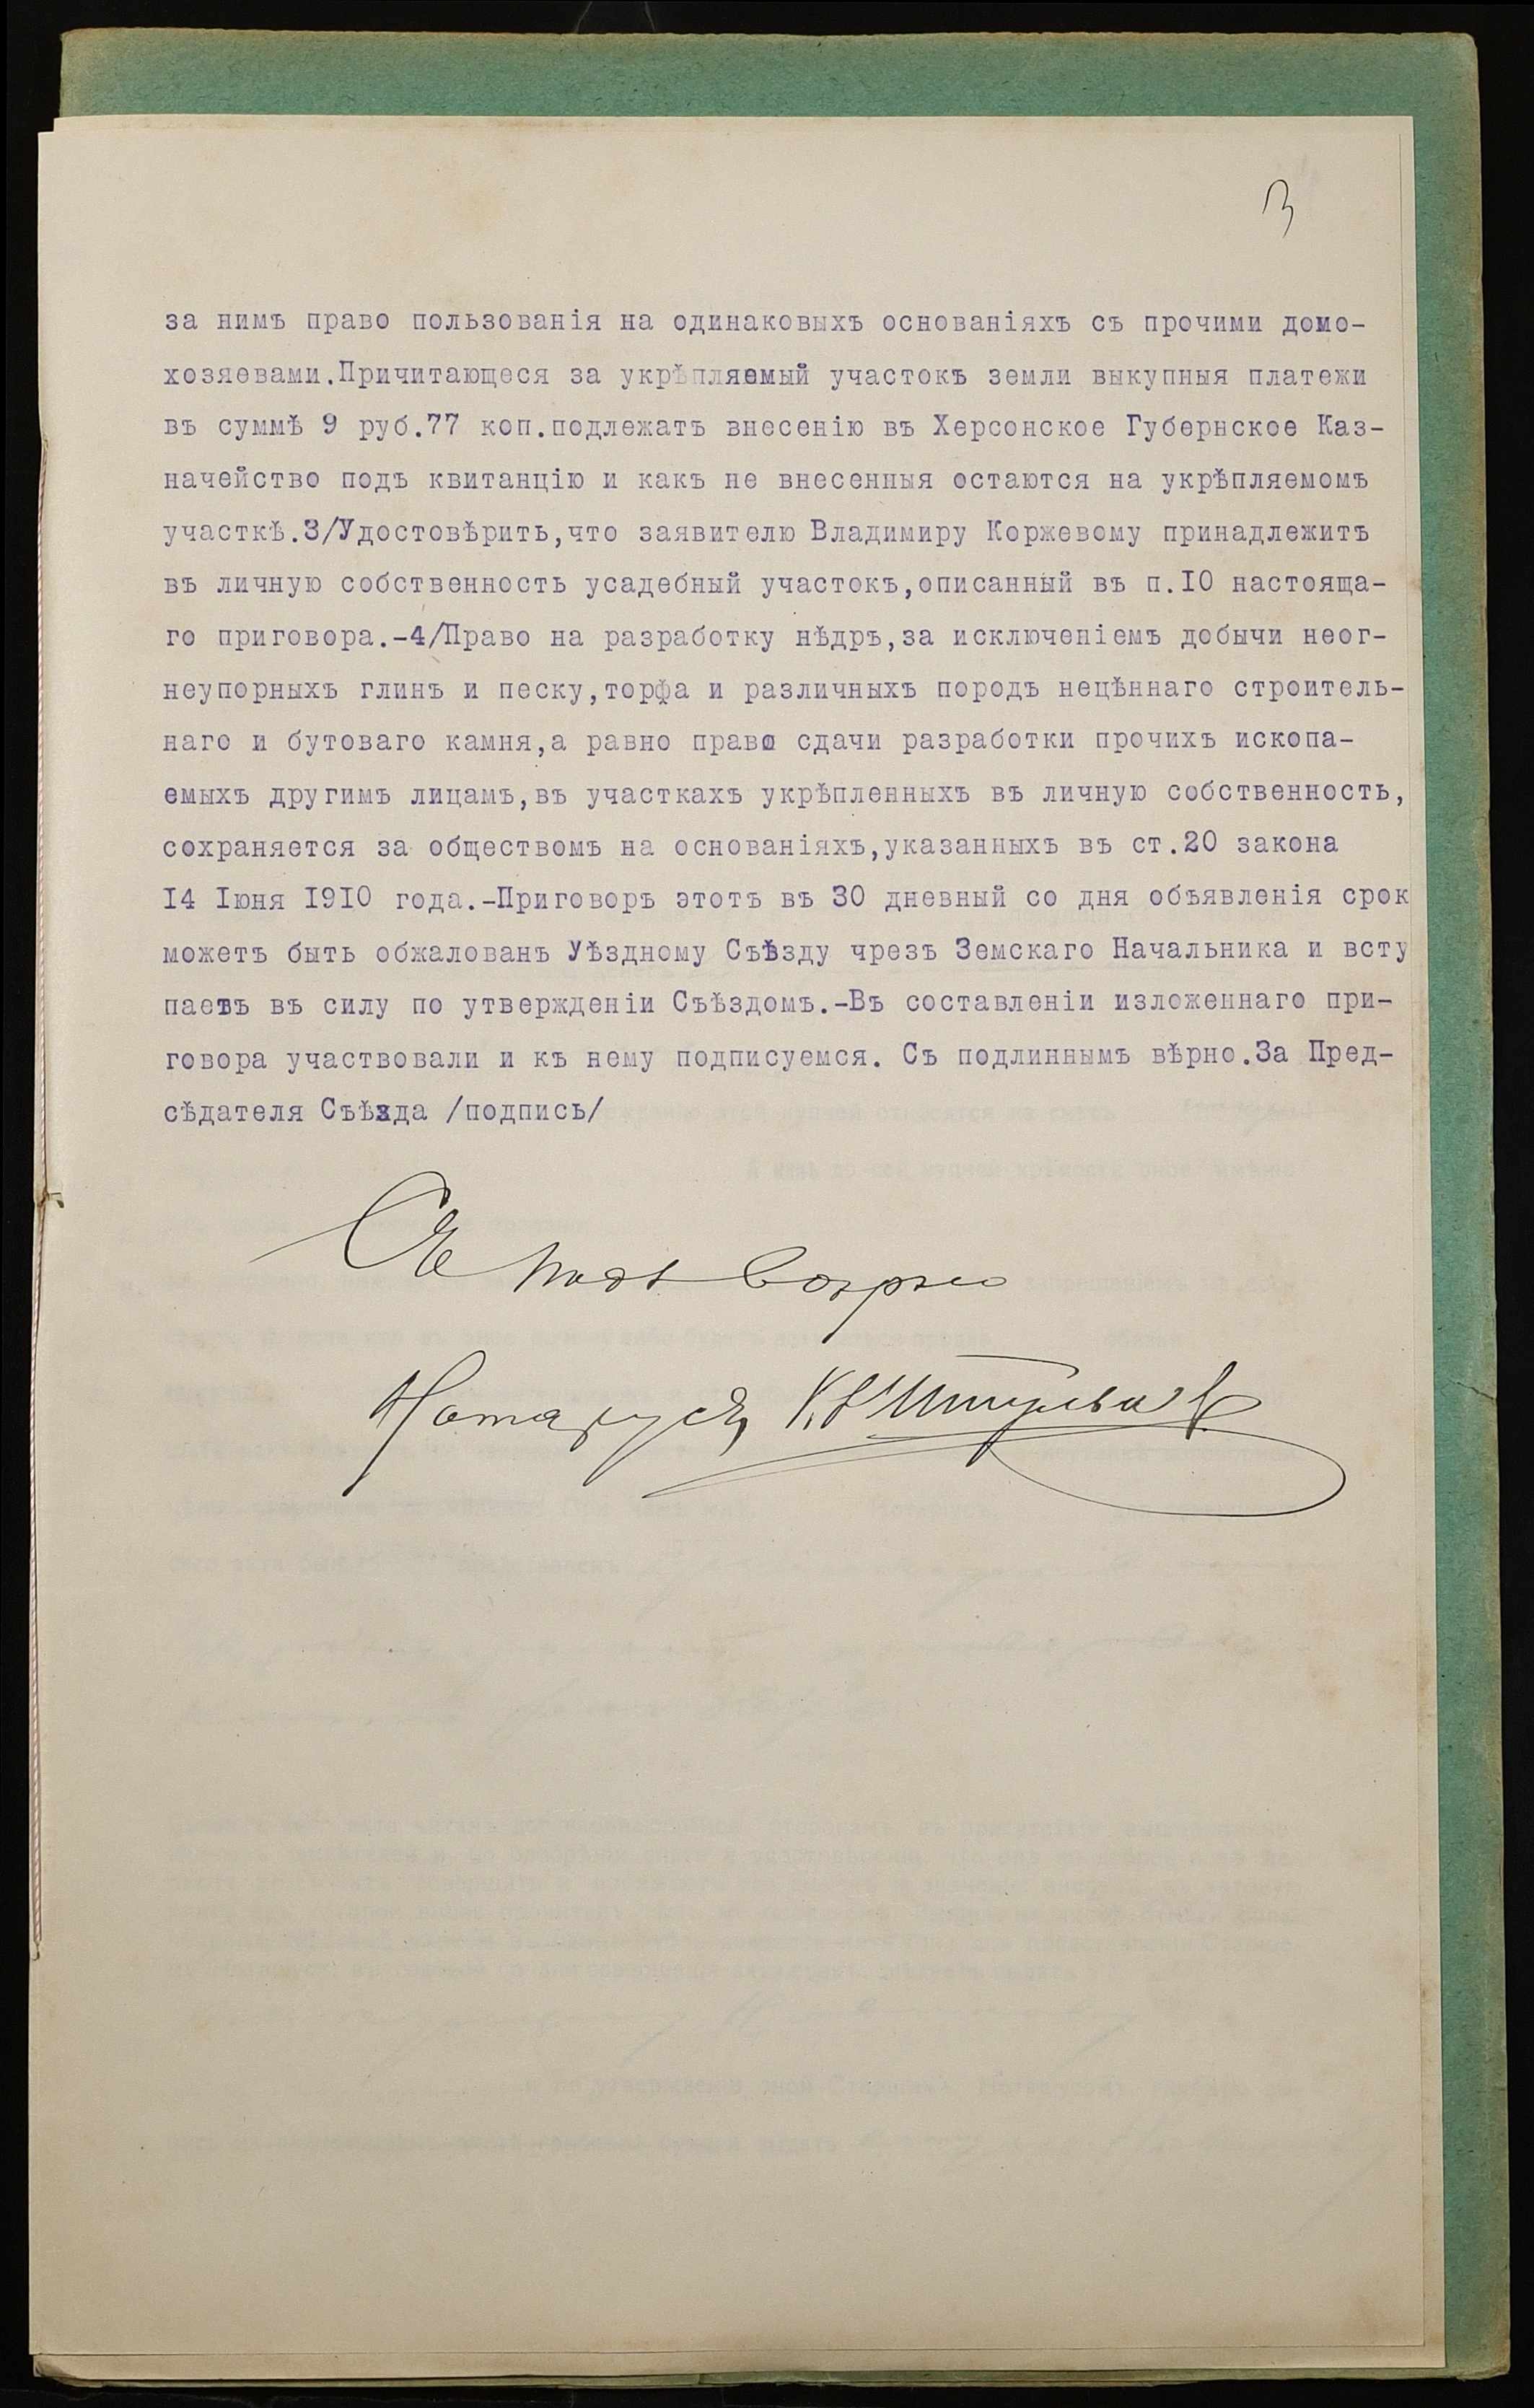 3
за нимъ право пользованія на одинаковыхъ основаніяхъ съ прочими домо-
хозяевами.Причитающеся за укрѣпляемый участокъ земли выкупныя платежи
въ суммѣ 9 руб.77 коп.подлежатъ внесенію въ Херсонское Губернское Каз-
начейство подъ квитанцію и какъ не внесенныя остаются на укрѣпляемомъ
участкѣ.3/Удостовѣрить,что заявителю Владимиру Коржевому принадлежитъ
въ личную собственность усадебный участокъ,описанный въ п.IO настояща-
го приговора.-4/Право на разработку нѣдръ,за исключеніемъ добычи неог-
неупорныхъ глинъ и песку,торфа и различныхъ породъ нецѣннаго строитель-
наго и бутоваго камня,а равно право сдачи разработки прочихъ ископа-
емыхъ другимъ лицамъ,въ участкахъ укрѣпленныхъ въ личную собственность,
сохраняется за обществомъ на основаніяхъ,указанныхъ въ ст.20 закона
I4 Іюня I9IO года.-Приговоръ этотъ въ 30 дневный со дня объявленія срок
можетъ быть обжалованъ Уѣздному Съѣзду чрезъ Земскаго Начальника и всту
паетъ въ силу по утвержденіи Съѣздомъ.-Въ составленіи изложеннаго при-
говора участвовали и къ нему подписуемся. Съ подлиннымъ вѣрно.За Пред-
сѣдателя Съѣзда /подпись/
Съ подл вѣрно
Нотаріусъ